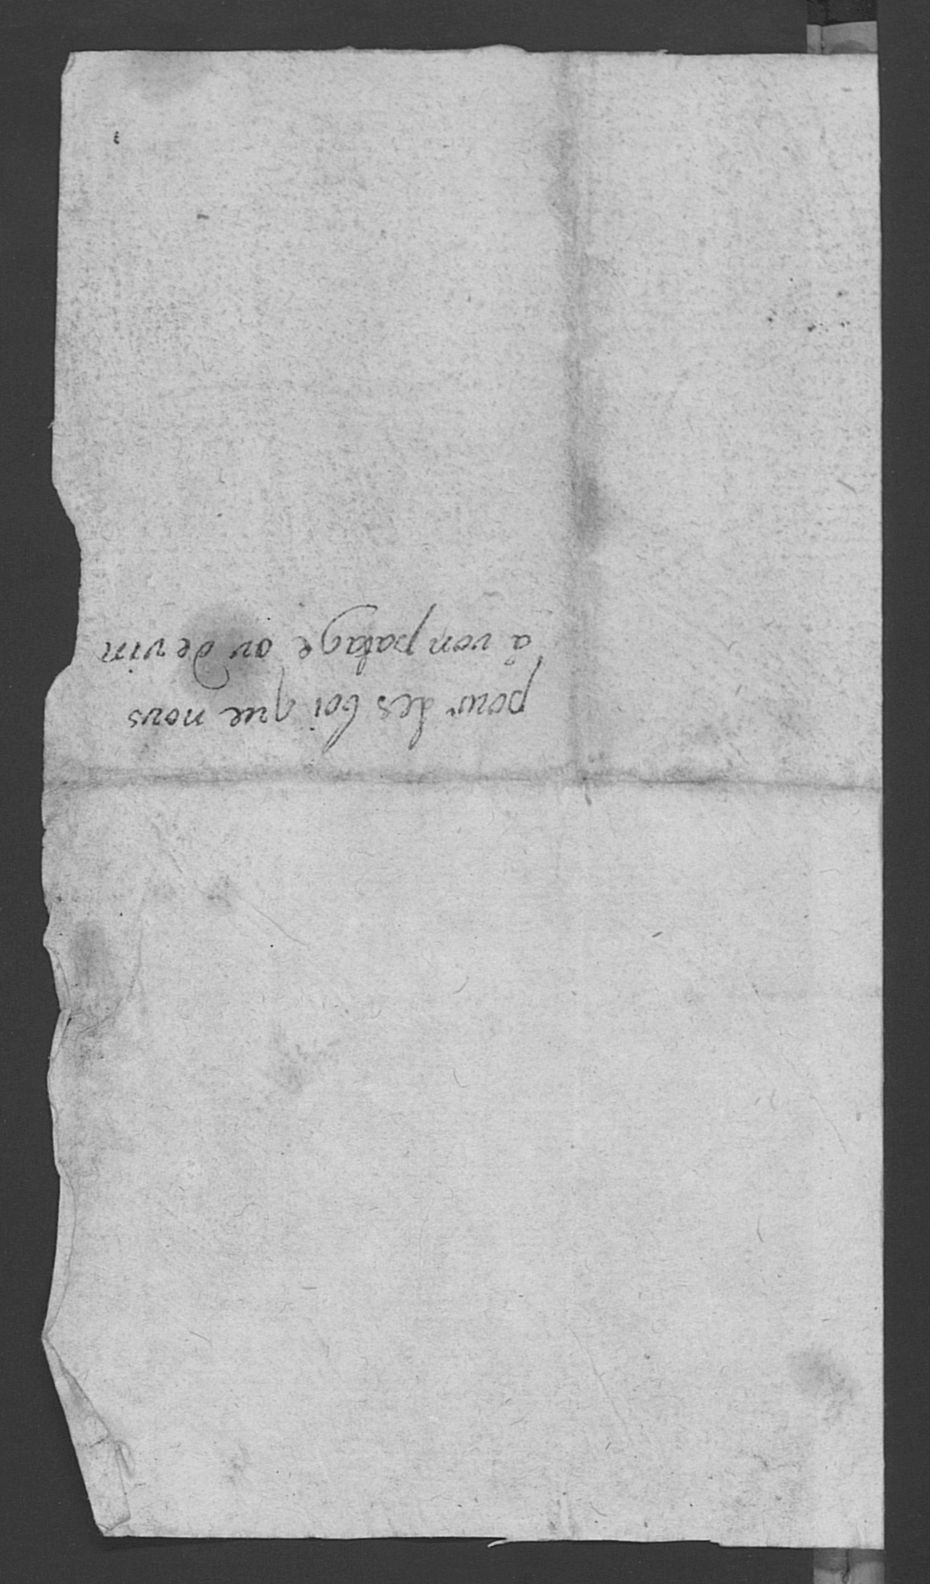 pour des boi que nous
a von patage ov de vin